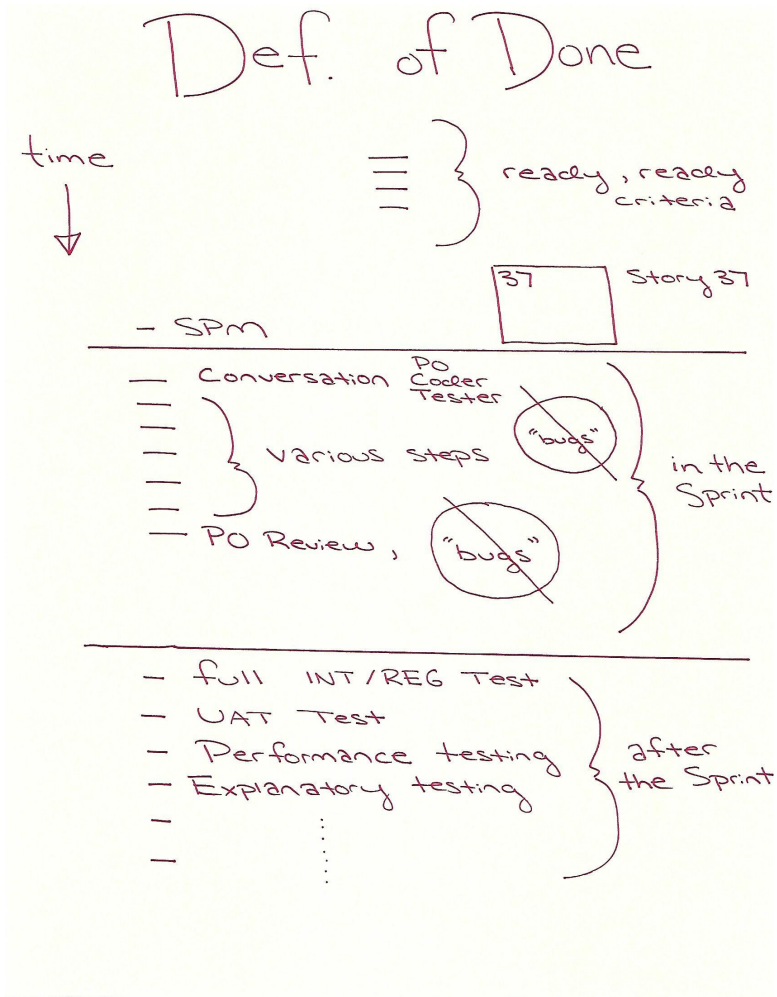 Def. of Done
time
ready, ready
criteria
37
Story 37
- SPM
Conversation PO
Coder
Tester
"bugs"
various steps
in the
Sprint
PO Review, "bugs"
- full INT/REG Test
- UAT Test
- Performance testing
- Explanatory testing
after
the Sprint